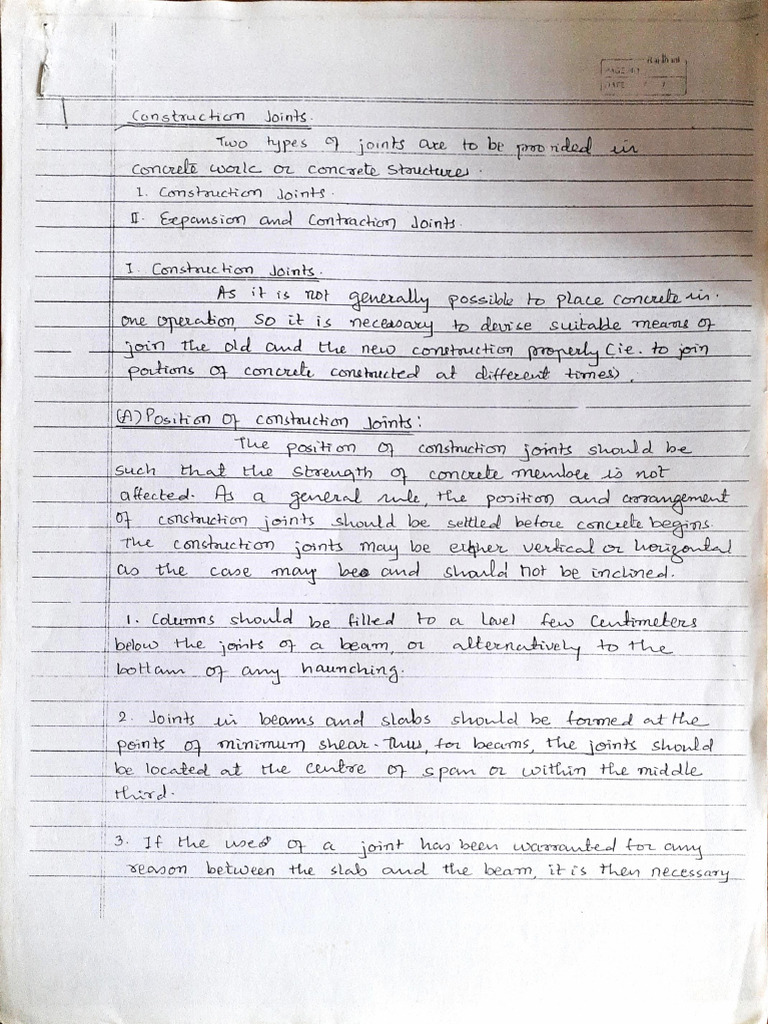 PAGE NO
DATE / /
Construction Joints.
Two types of joints are to be provided in
concrete work or concrete structures.
I. Construction Joints.
II. Expansion and Contraction Joints.
I. Construction Joints.
As it is not generally possible to place concrete in
one operation, so it is necessary to devise suitable means of
join the old and the new construction properly (ie. to join
portions of concrete constructed at different times).
(A) Position of construction Joints:
The position of construction joints should be
such that the strength of concrete member is not
affected. As a general rule, the position and arrangement
of construction joints should be settled before concrete begins.
The construction joints may be either vertical or horizontal
as the case may be and should not be inclined.
1. Columns should be filled to a level few centimeters
below the joints of a beam, or alternatively to the
bottam of any haunching.
2. Joints in beams and slabs should be formed at the
points of minimum shear. Thus, for beams, the joints should
be located at the centre of span or within the middle
third.
3. If the used of a joint has been warranted for any
reason between the slab and the beam, it is then necessary